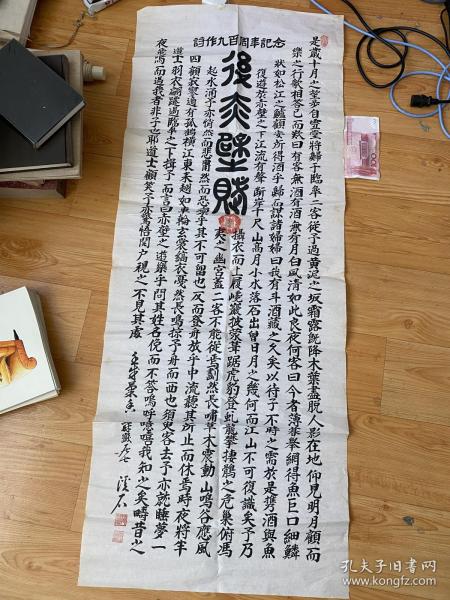 詩作九百周年記念
後赤壁賦
是歲十月之望步自雪堂將歸于臨皋二客從予過黃泥之坂霜露既降木葉盡脫人影在地仰見明月顧而
樂之行歌相答已而歎曰有客無酒有酒無肴月白風清如此良夜何客曰今者薄暮舉網得魚巨口細鱗
狀如松江之鱸顧安所得酒乎歸而謀諸婦婦曰我有斗酒藏之久矣以待子不時之需於是攜酒與魚
復遊於赤壁之下江流有聲斷岸千尺山高月小水落石出曾日月之幾何而江山不可復識矣予乃
攝衣而上履巉巖披蒙茸踞虎豹登虬龍攀棲鶻之危巢俯馮
夷之幽宮蓋二客不能從焉劃然長嘯草木震動山鳴谷應風
起水涌予亦悄然而悲肅然而恐凜乎其不可留也反而登舟放乎中流聽其所止而休焉時夜將半
四顧寂寥適有孤鶴橫江東來翅如車輪玄裳縞衣戛然長鳴掠予舟而西也須臾客去予亦就睡夢一
道士羽衣翩躚過臨皋之下揖予而言曰赤壁之遊樂乎問其姓名俛而不答嗚呼噫嘻我知之矣疇昔之
夜飛鳴而過我者非子也耶道士顧笑予亦驚悟開户視之不見其處
孔夫子旧书网
www.kongfz.com